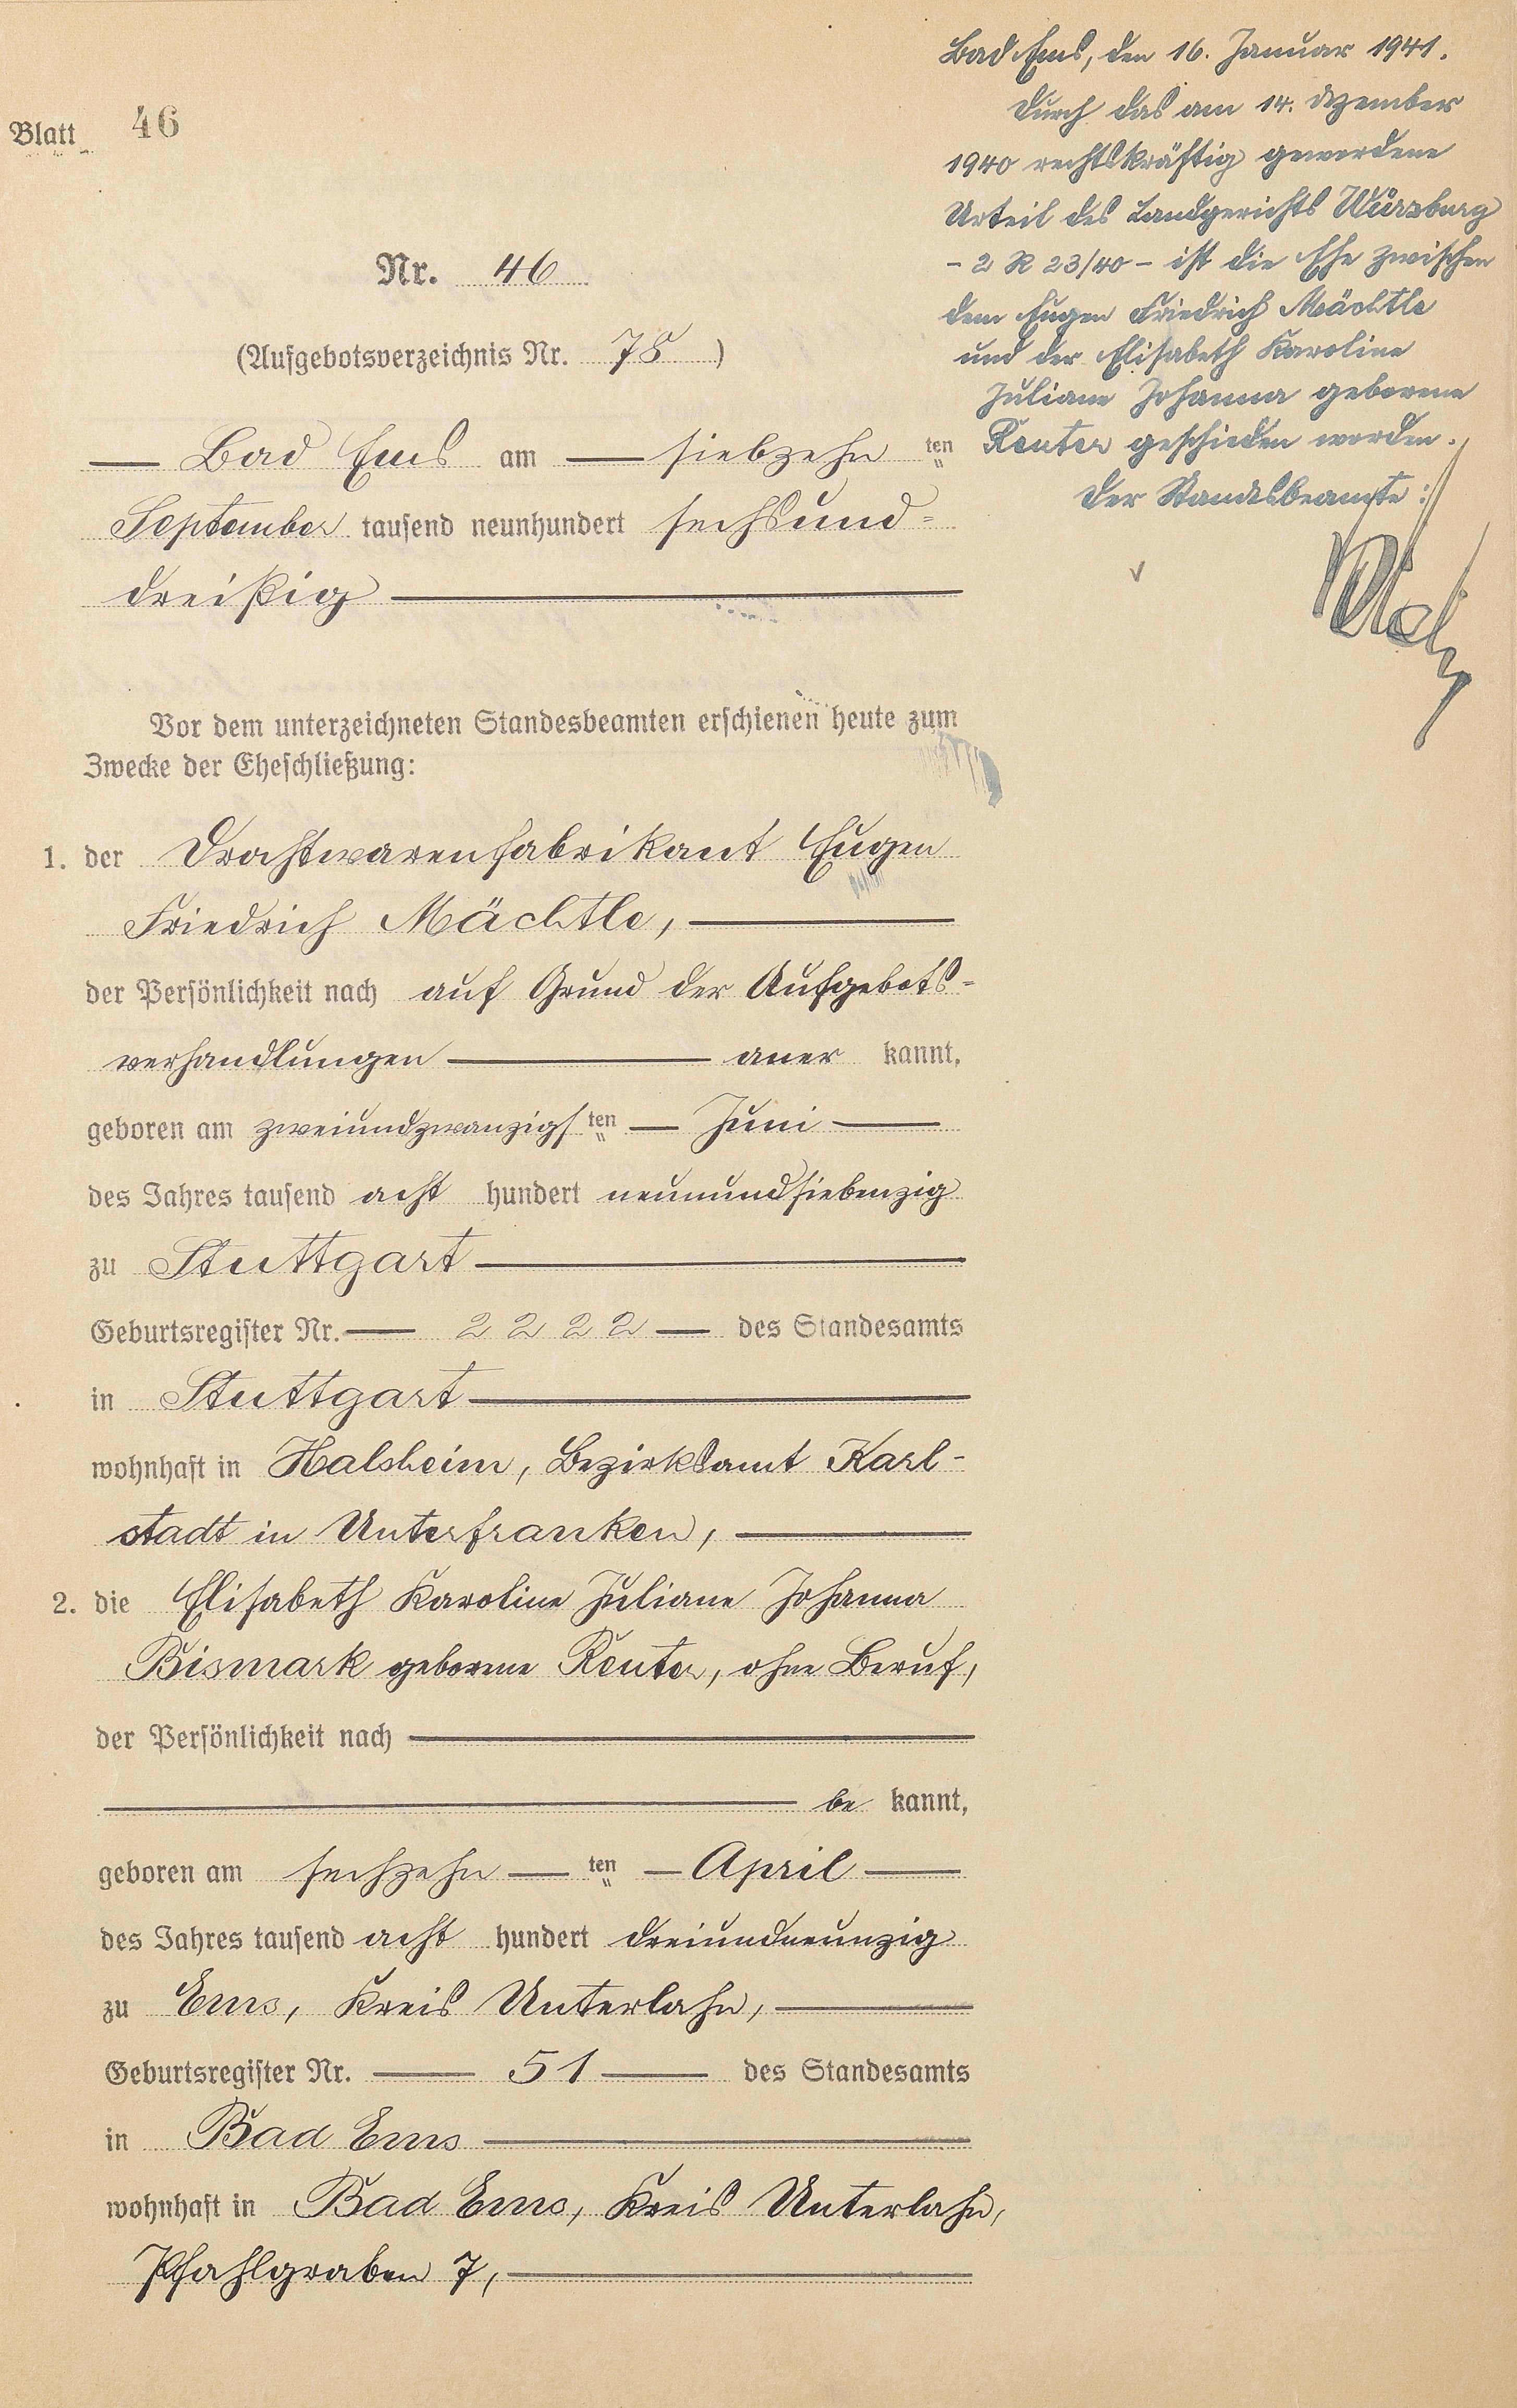 Blatt 46
Nr. 46
(Aufgebotsverzeichnis Nr. 78)
— Bad Ems am — siebzehn ten
September tausend neunhundert sechsund-
dreißig —
Vor dem unterzeichneten Standesbeamten erschienen heute zum
Zwecke der Eheschließung:
1. der Drahtwarenfabrikant Eugen
Friedrich Mächtle, —
der Persönlichkeit nach auf Grund der Aufgebots-
verhandlungen — aner kannt,
geboren am zweiundzwanzigsten — Juni —
des Jahres tausend acht hundert neunundsiebenzig
zu Stuttgart —
Geburtsregister Nr. — 2222 — des Standesamts
in Stuttgart —
wohnhaft in Halsheim, Bezirksamt Karl-
stadt in Unterfranken, —
2. die Elisabeth Karoline Juliane Johanna
Bismark geborene Reuter, ohne Beruf,
der Persönlichkeit nach —
— be kannt,
geboren am sechzehn — ten — April —
des Jahres tausend acht hundert dreiundneunzig
zu Ems, Kreis Unterlahn, —
Geburtsregister Nr. — 51 — des Standesamts
in Bad Ems —
wohnhaft in Bad Ems, Kreis Unterlahn,
Pfahlgraben 7, —
Bad Ems, den 16. Januar 1941.
Durch das am 14. Dezember
1940 rechtskräftig gewordene
Urteil des Landgerichts Würzburg
- 2 R 23/40 - ist die Ehe zwischen
dem Eugen Friedrich Mächtle
und der Elisabeth Karoline
Juliane Johanna geborene
Reuter geschieden worden.
Der Standesbeamte: